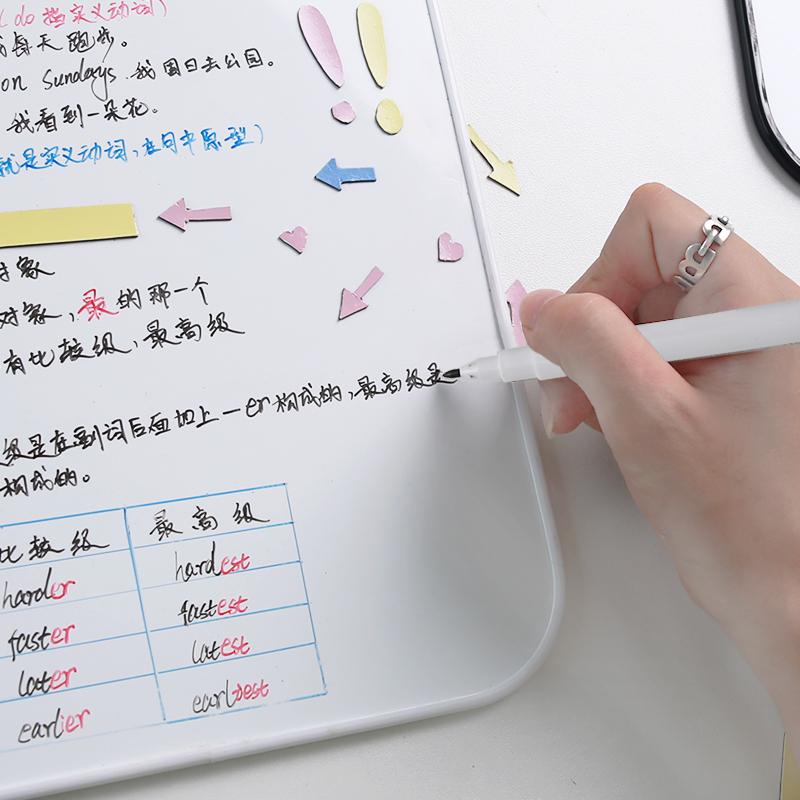 do 指实义动词)
我每天跑步。
on Sundays 我周日去公园。
我看到一朵花。
就是实义动词,在句中原型)
对象
对象,最的那一个
有比较级,最高级
级是在副词后面加上-er构成的,最高级是
构成的。
比较级 最高级
harder hardest
faster fastest
later latest
earlier earliest